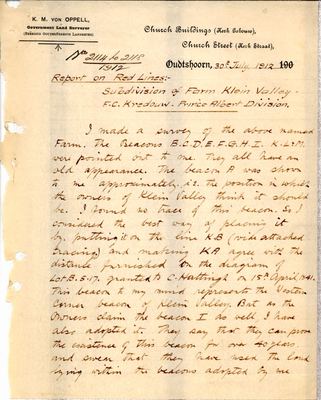 K. M. VON OPPELL,
Government Land Surveyor
Church Buildings (Kerk Gebouw),
Church Street (Kerk Straat),
Nº 2114 to 2118
1912
Oudtshoorn, 30th July 1912 190
Report on Red Lines:-
Subdivision of Farm Klein Valley -
F.C. Kredouw - Prince Albert Division.
I made a survey of the above named
Farm. The Beacons B.C.D.E.F.G.H.I. K-L.M.
were pointed out to me. They all have an
old appearance. The beacon A was shown
to me approximately, i.e. the position in which
the owners of Klein Valley think it should
be. I found no trace of this beacon. So I
considered the best way of placing it
by putting it on the line K.B (vide attached
tracing) and making KA agree with the
distance furnished on the diagram of
Lot granted to C. Hattingh on 15th April
This beacon to my mind represents the Western
Corner beacon of Klein Valley. But as the
Owners claim the beacon I as well, I have
also adopted it. They say that they can prove
the existence of this beacon for over 40 years.
and swear that they have used the land
lying within the beacons adopted by me